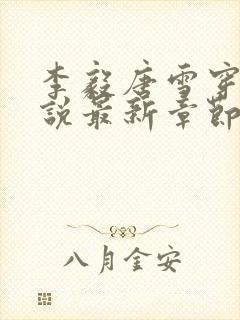 李毅唐雪穿
说最新章節
八月金安